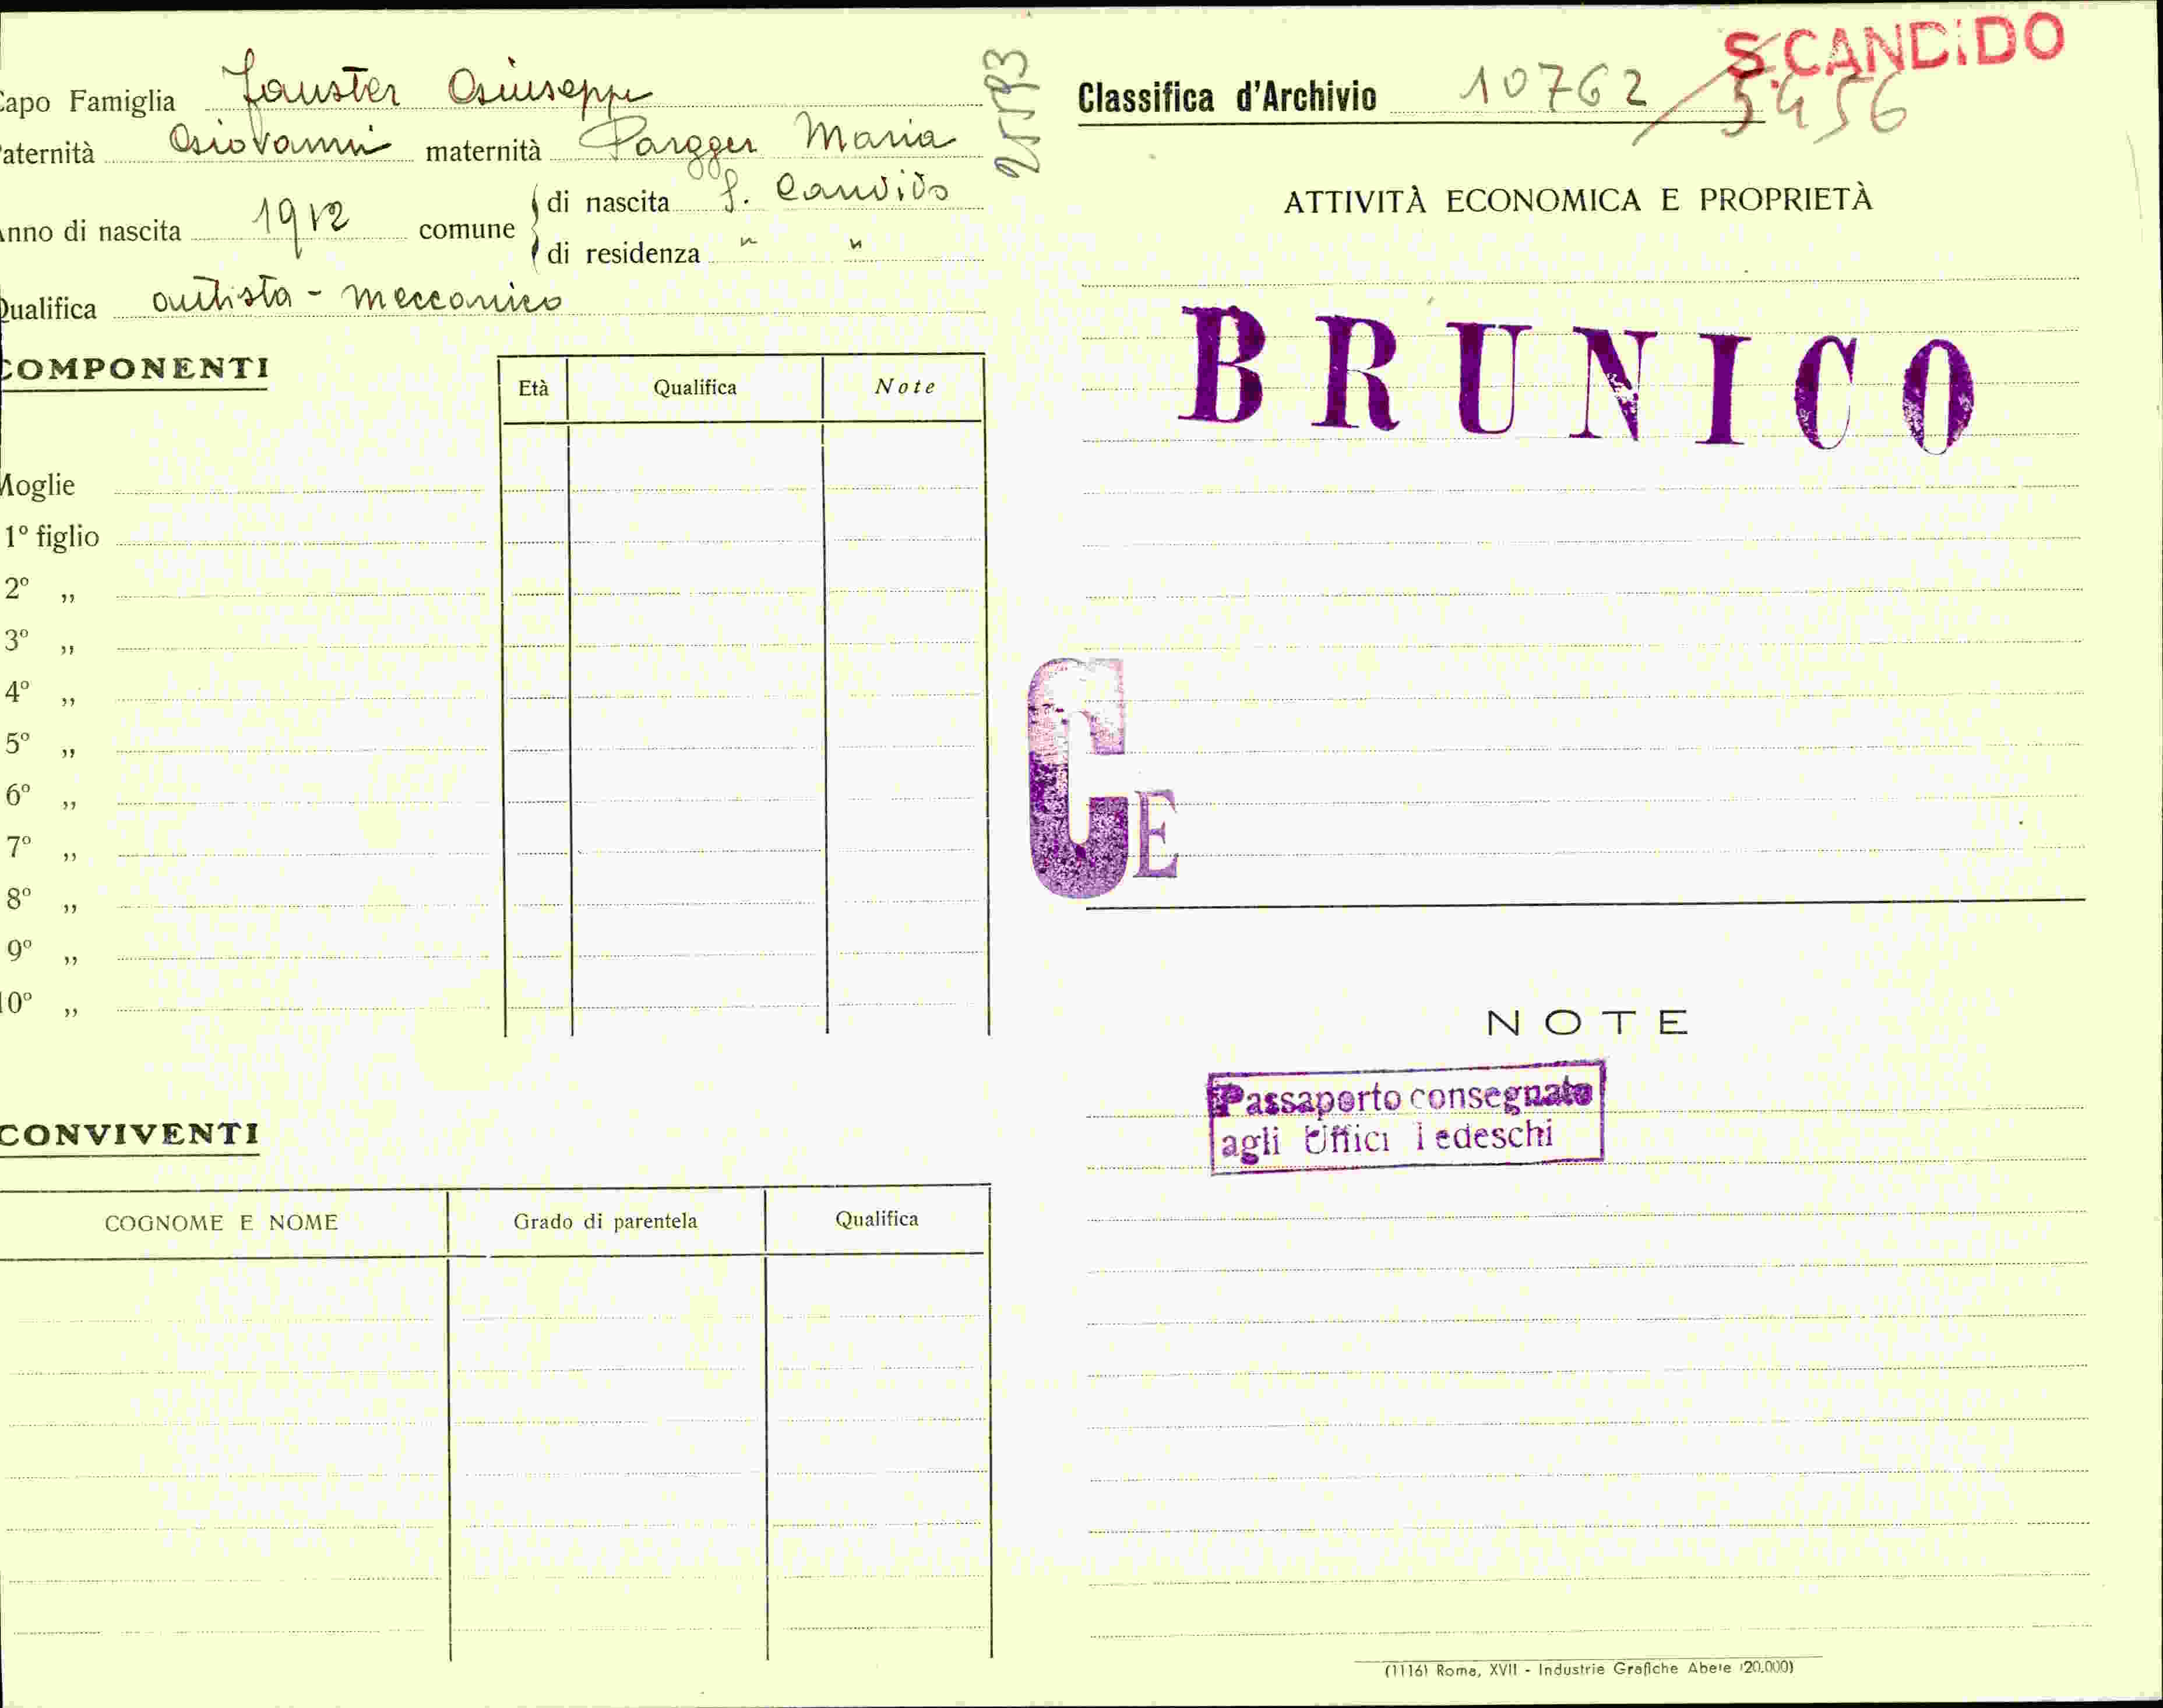 Capo Famiglia Fauster Giuseppe
Paternità Giovanni maternità Pargger Maria
Anno di nascita 1912 comune di nascita S. Candido
di residenza " "
Qualifica autista - meccanico
COMPONENTI
Età Qualifica Note
Moglie
1º figlio
2º „
3º „
4º „
5º „
6º „
7º „
8º „
9º „
10º „
CONVIVENTI
COGNOME E NOME Grado di parentela Qualifica
S.CANDIDO
Classifica d'Archivio 10762/5456
ATTIVITÀ ECONOMICA E PROPRIETÀ
BRUNICO
G E
NOTE
Passaporto consegnato
agli Uffici Tedeschi
(1116) Roma, XVII - Industrie Grafiche Abete (20.000)